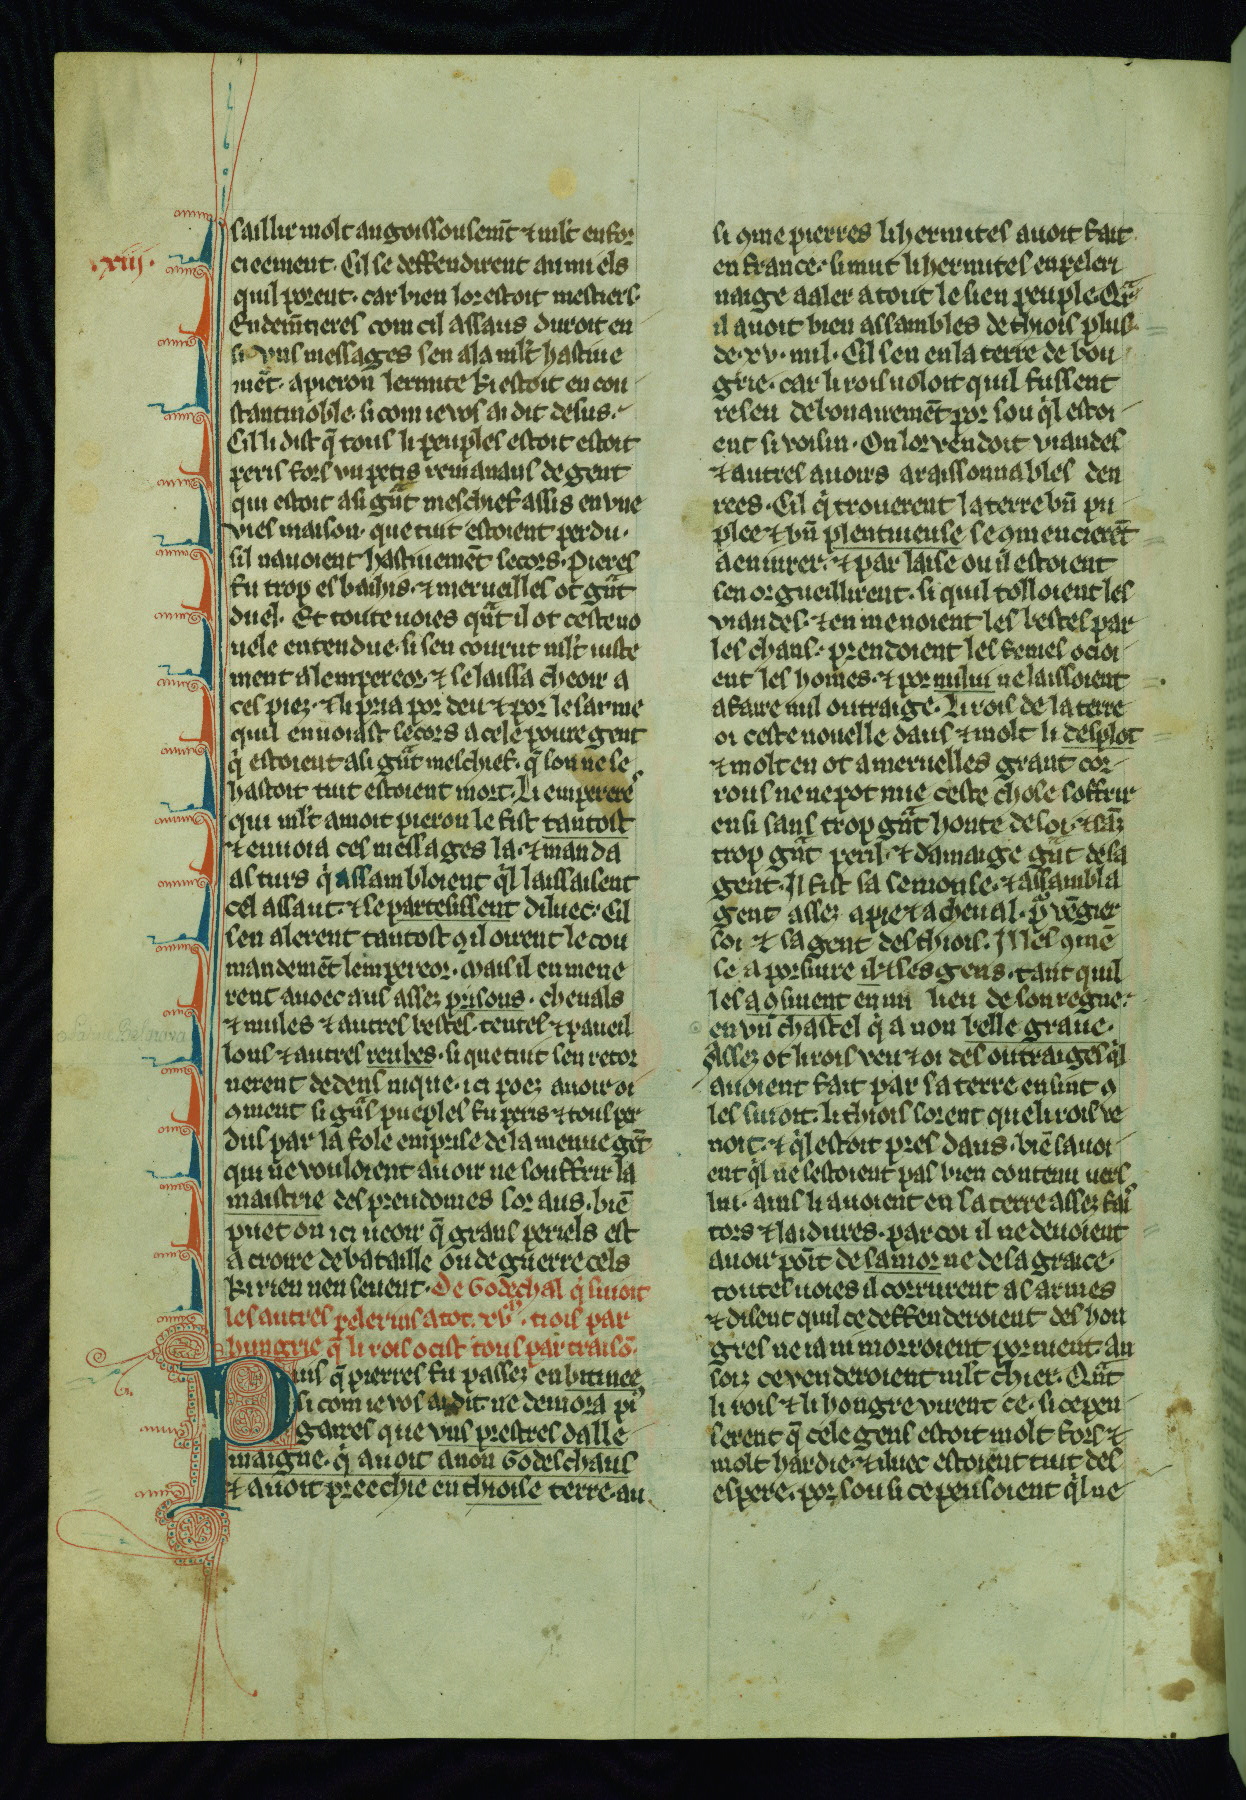 saillir molt angoissousem̄t ⁊ ml't enfor
cieement. Cil se deffendirent au miels
.xiij.
quil porent. car bien lor estoit mestiers.
Endem̄tieres com cil assaus duroit en
si vns messages sen ala ml't hastiue
mēt. a pieron lermite ki estoit en cou
stantinoble. si com ie vos ai dit desus.
Cil li dist q̄ tous li peuples estoit estoit
peris fors vn petis remanans de gent
qui estoit a si gn̄t meschief assis en vne
vies maison. que tuit estoient perdu.
sil nauoient hastiuemēt secors. Pieres
fu trop esbahis. ⁊ merueilles ot gn̄t
duel. Et toute uoies qn̄t il ot ceste no
uele entendue. si sen courut ml't uiste
ment a lempereor. ⁊ se laissa cheoir a
ces piez. ⁊ li pria por deu ⁊ por le sarme
quil enuoiast secors a cele poure gent
q̇ estoient a si gn̄t meschief. q̄ son ne se
hastoit tuit estoient mort. Li emperere
qui ml't amoit pieron le fist tantost
⁊ enuoia ces messages la. ⁊ manda
as turs q̇ assambloient q̇l laissaisent
cel assaut. ⁊ se partesissent diluec. Cil
sen alerent tantost q̇ il oirent le cou
mandemēt lempereor. Mais il en mene
rent auoec aus assez prisons. cheuals
⁊ mules ⁊ autres bestes. tentes ⁊ paueil
lons ⁊ autres reubes. si que tuit sen retor
nerent dedens nique. ici poez auoir oi
9ment si gn̄s pueples fu peris ⁊ tous per
dus par la fole emprise de la menue gēt
qui ne vouloient auoir ne souffrir la
maistrie des preudomes sor aus. biē
puet on ici ueoir q̄ grans periels est
a croire de bataille ou de guerre cels
ki rien nen seuent. De Godechal q̇ siuoit
les autres pelerins a tot .xv.m tiois par
hungrie q̄ li rois ocist tous par traisō.
Puis q̄ pierres fu passez en bitinee
si com ie vos ai dit ne demora pas
gaires que vns prestres dalle
maigne. q̇ auoit a non Godeschaus
⁊ auoit preechie en thioise terre. au
si 9me pierres li hermites auoit fait
en france. si mut li hermites en peleri
naige a aler a tout le sien peuple. Car
il auoit bien assambles de thiois plus
de .xv. mil. Cil sen en la terre de hon
grie. car li rois uoloit quil fussent
reseu debonairemēt por sou q̇l estoi
ent si voisin. On lor vendoit viandes
⁊ autres auoirs a raissonnables den
rees. Cil q̇ trouerent la terre bn̄ pu
plee ⁊ bn̄ plentiueuse se 9mencierēt
a eniurer. ⁊ par laise ou il estoient
sen orgueillirent. si quil tolloient les
viandes. ⁊ en menoient les bestes par
les chans. prendoient les femes ocioi
ent les homes. ⁊ por nului ne laissoient
a faire nul outraige. Li rois de la terre
oi ceste nouelle dans ⁊ molt li desplot
⁊ molt en ot a meruelles grant cor
rous ne ne pot mie ceste chose soffrir
ensi sans trop gn̄t honte de soi. ⁊ sanz
trop gn̄t peril. ⁊ damaige gn̄t de sa
gent. Il fist sa semonse. ⁊ assambla
gent assez a pie ⁊ a cheual. por vēgier
soi ⁊ sa gent des thiois. Mes 9mē
se a porsiure il ⁊ ses gens. tant quil
les a9siuent en mi lieu de son regne.
en vn̄ chastel q̇ a non belle graue.
Assez ot li rois veu ⁊ oi des outraiges q̇l
auoient fait par sa terre ensint 9
les siuoit. li thiois sorent que li rois ve
noit. ⁊ q̇l estoit pres daus. biē sauoi
ent q̇l ne sestoient pas bien contenu uers
lui. ains li auoient en sa terre assez fai
tors ⁊ laidures. par coi il ne deuoient
auoir poīt de samor ne de sa grace.
toutes uoies il corrurent as armes
⁊ disent quil ce deffenderoient des hon
gres ne ia ni morroient por nient. an
soiz ce venderoient ml't chier. Qn̄t
li rois ⁊ li hongre virent ce. si ce pen
serent q̄ cele gens estoit molt fors ⁊
molt hardie. ⁊ iluec estoient tuit des
espere. por sou si ce pensoient q̇l ne